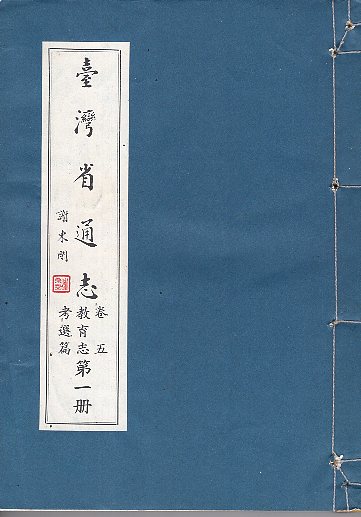 臺灣省通志
卷五
教育志
考選篇
第一册
謝東閔